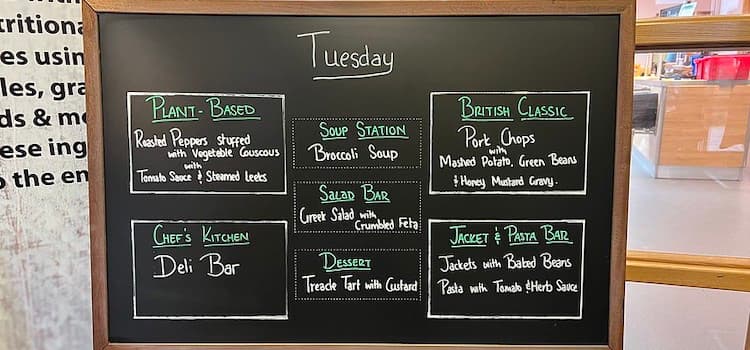 tritiona
es usin
les, gra
ds & me
ese ing
the en
Tuesday
PLANT-BASED
Roasted Peppers stuffed
with Vegetable Couscous
with
Tomato Sauce & Steamed Leeks
SOUP STATION
Broccoli Soup
BRITISH CLASSIC
Pork Chops
with
Mashed Potato, Green Beans
& Honey Mustard Gravy.
SALAD BAR
Greek Salad with
Crumbled Feta
CHEF'S KITCHEN
Deli Bar
DESSERT
Treacle Tart with Custard
JACKET & PASTA BAR
Jackets with Baked Beans
Pasta with Tomato & Herb Sauce